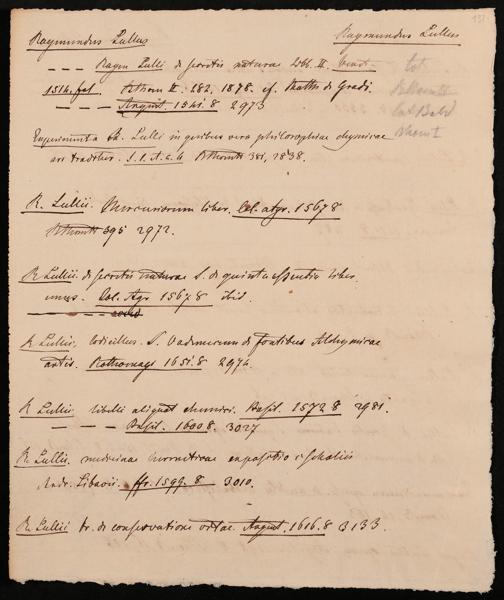 Raymundus Lullus Raymundus Lullus
— — — Raym Lulli de secretis naturae Libb. II. Venet.
1514. fol. II. 282, 1878. cf. Matth. de Gradi.
— — — August. 1541. 8 2973
Experimenta R. Lulli in quibus vera philosophiae chymicae
ars traditur. s. l. et a. 4 381, 2838.
R. Lullii. Mercuriorum liber. Col. Agr. 1567 8
395 2972.
R Lullii. de secretis naturae S. de quinta essentia liber
unus. Col. Agr. 1567 8 ibid.
R. Lullii. Codicillus. S. Vademecum de fontibus Alchymicae
artis. Rothomagi 1651. 8 2974.
R Lullii libelli aliquot chemici. Basil. 1572. 8 2981.
— — — Basil. 1600 8. 3027
R. Lullii. medicinae expositio
Andr. Libavii. ffr. 1599. 8 3010.
R. Lullii tr. de conservatione vitae. August. 1616. 8 3133.